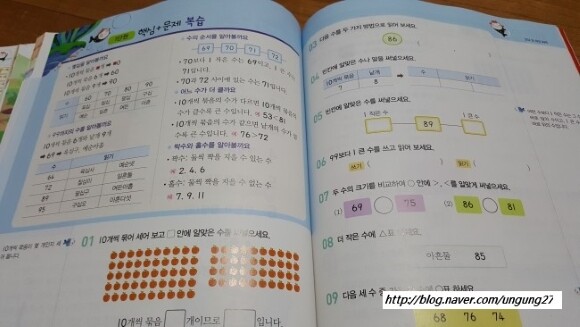 핵심+문제 복습
수의 순서를 알아볼까요
69 70 71 72
• 70보다 1 작은 수는 69이고, 1 큰 수는
71입니다.
• 70과 72 사이에 있는 수는 71입니다.
어느 수가 더 클까요
• 10개씩 묶음의 수가 다르면 10개씩 묶음의
수가 클수록 큰 수입니다. ➡ 53<81
• 10개씩 묶음의 수가 같으면 낱개의 수가 클
수록 큰 수입니다. ➡ 76>72
짝수와 홀수를 알아볼까요
• 짝수: 둘씩 짝을 지을 수 있는 수
2, 4, 6
• 홀수: 둘씩 짝을 지을 수 없는 수
7, 9, 11
60 70 80 90
수 읽기
64 육십사 예순넷
72 칠십이 일흔둘
89 팔십구 여든아홉
95 구십오 아흔다섯
01 10개씩 묶어 세어 보고 □ 안에 알맞은 수를
10개씩 묶음 □ 개이므로 □ 입니다.
03 다음 수를 두 가지 방법으로 읽어 보세요.
86
04 빈칸에 알맞은 수나 말을 써넣으세요.
10개씩 묶음 낱개 수 읽기
7 8
05 빈칸에 알맞은 수를 써넣으세요.
1 작은 수 1 큰 수
89
06 99보다 1 큰 수를 쓰고 읽어 보세요.
쓰기 읽기
07 두 수의 크기를 비교하여 ○ 안에 >, <를 알맞게 써넣으세요.
(1) 69 ○ 75 (2) 86 ○ 81
08 더 작은 수에 △표
아흔둘 85
09 다음 세 수 중 ○표 하세요.
68 76 74
http://blog.naver.com/ungung27